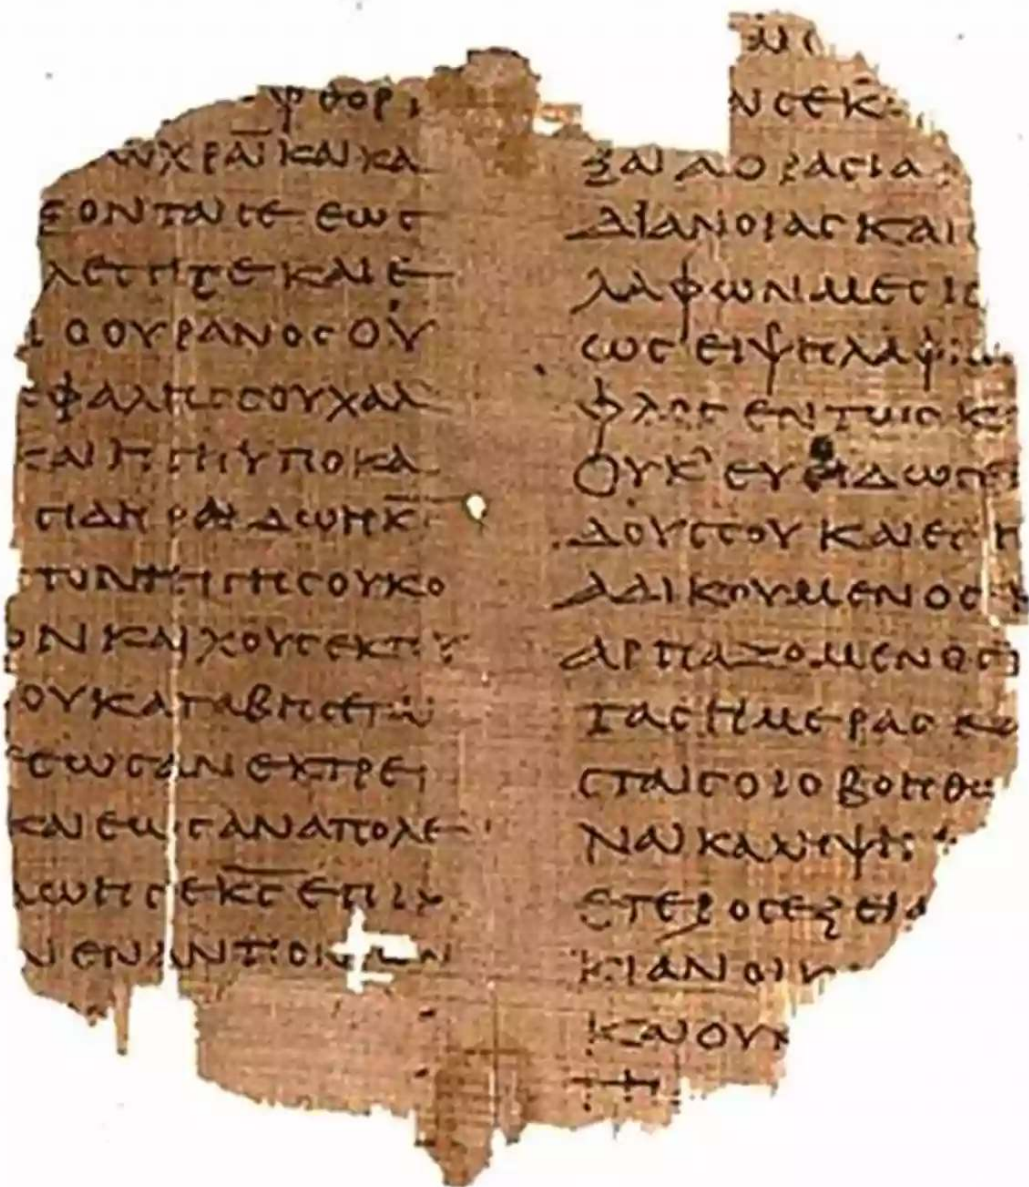 ΦΘΟΡΙ
ΩΧΡΑΙ ΚΑΙ ΚΑ
ΞΟΝΤΑΙ ΣΕ ΕΩΣ
ΛΕΣΗΤΕ ΚΑΙ Ε
Ι Ο ΟΥΡΑΝΟΣ ΟΥ
ΕΦΑΛΗΣ ΣΟΥ ΧΑΛ
ΚΑΙ Η ΓΗ ΥΠΟΚΑ
ΣΙΔΗΡΑ ΔΩΗ Κ
ΤΟΝ ΤΗ ΓΗ ΣΟΥ ΚΟ
ΟΝ ΚΑΙ ΧΟΥΣ ΕΚ Τ
ΟΥ ΚΑΤΑΒΗΣΕΤ
ΕΩΣ ΑΝ ΕΚΤΡΕΙ
ΚΑΙ ΕΩΣ ΑΝ ΑΠΟΛΕ
ΔΩΗ ΣΕ ΚΣ ΕΠΙΚ
Ν ΕΝΑΝΤΙΟΝ ΤΩΝ
ΑΙ ΣΕ Κ
ΑΟΡΑΣΙΑ
ΔΙΑΝΟΙΑΣ ΚΑΙ
ΛΑΦΩΝ ΜΕΣΗ
ΩΣ ΕΙ ΨΗΛΑΦ
ΦΛΟΣ ΕΝ ΤΩΙ ΣΚ
ΟΥΚ ΕΥΟΔΩΣΕ
ΔΟΥΣ ΣΟΥ ΚΑΙ ΕΣΗ
ΑΔΙΚΟΥΜΕΝΟΣ Κ
ΑΡΠΑΖΟΜΕΝΟΣ
ΤΑΣ ΗΜΕΡΑΣ ΚΑ
ΣΤΑΙ ΣΟΙ Ο ΒΟΗΘΩ
ΝΑΙΚΑ ΛΗΜΨΗ
ΕΤΕΡΟΣ ΕΞΕΙ Α
ΚΙΑΝ ΟΙΚ
ΚΑΙ ΟΥΚ